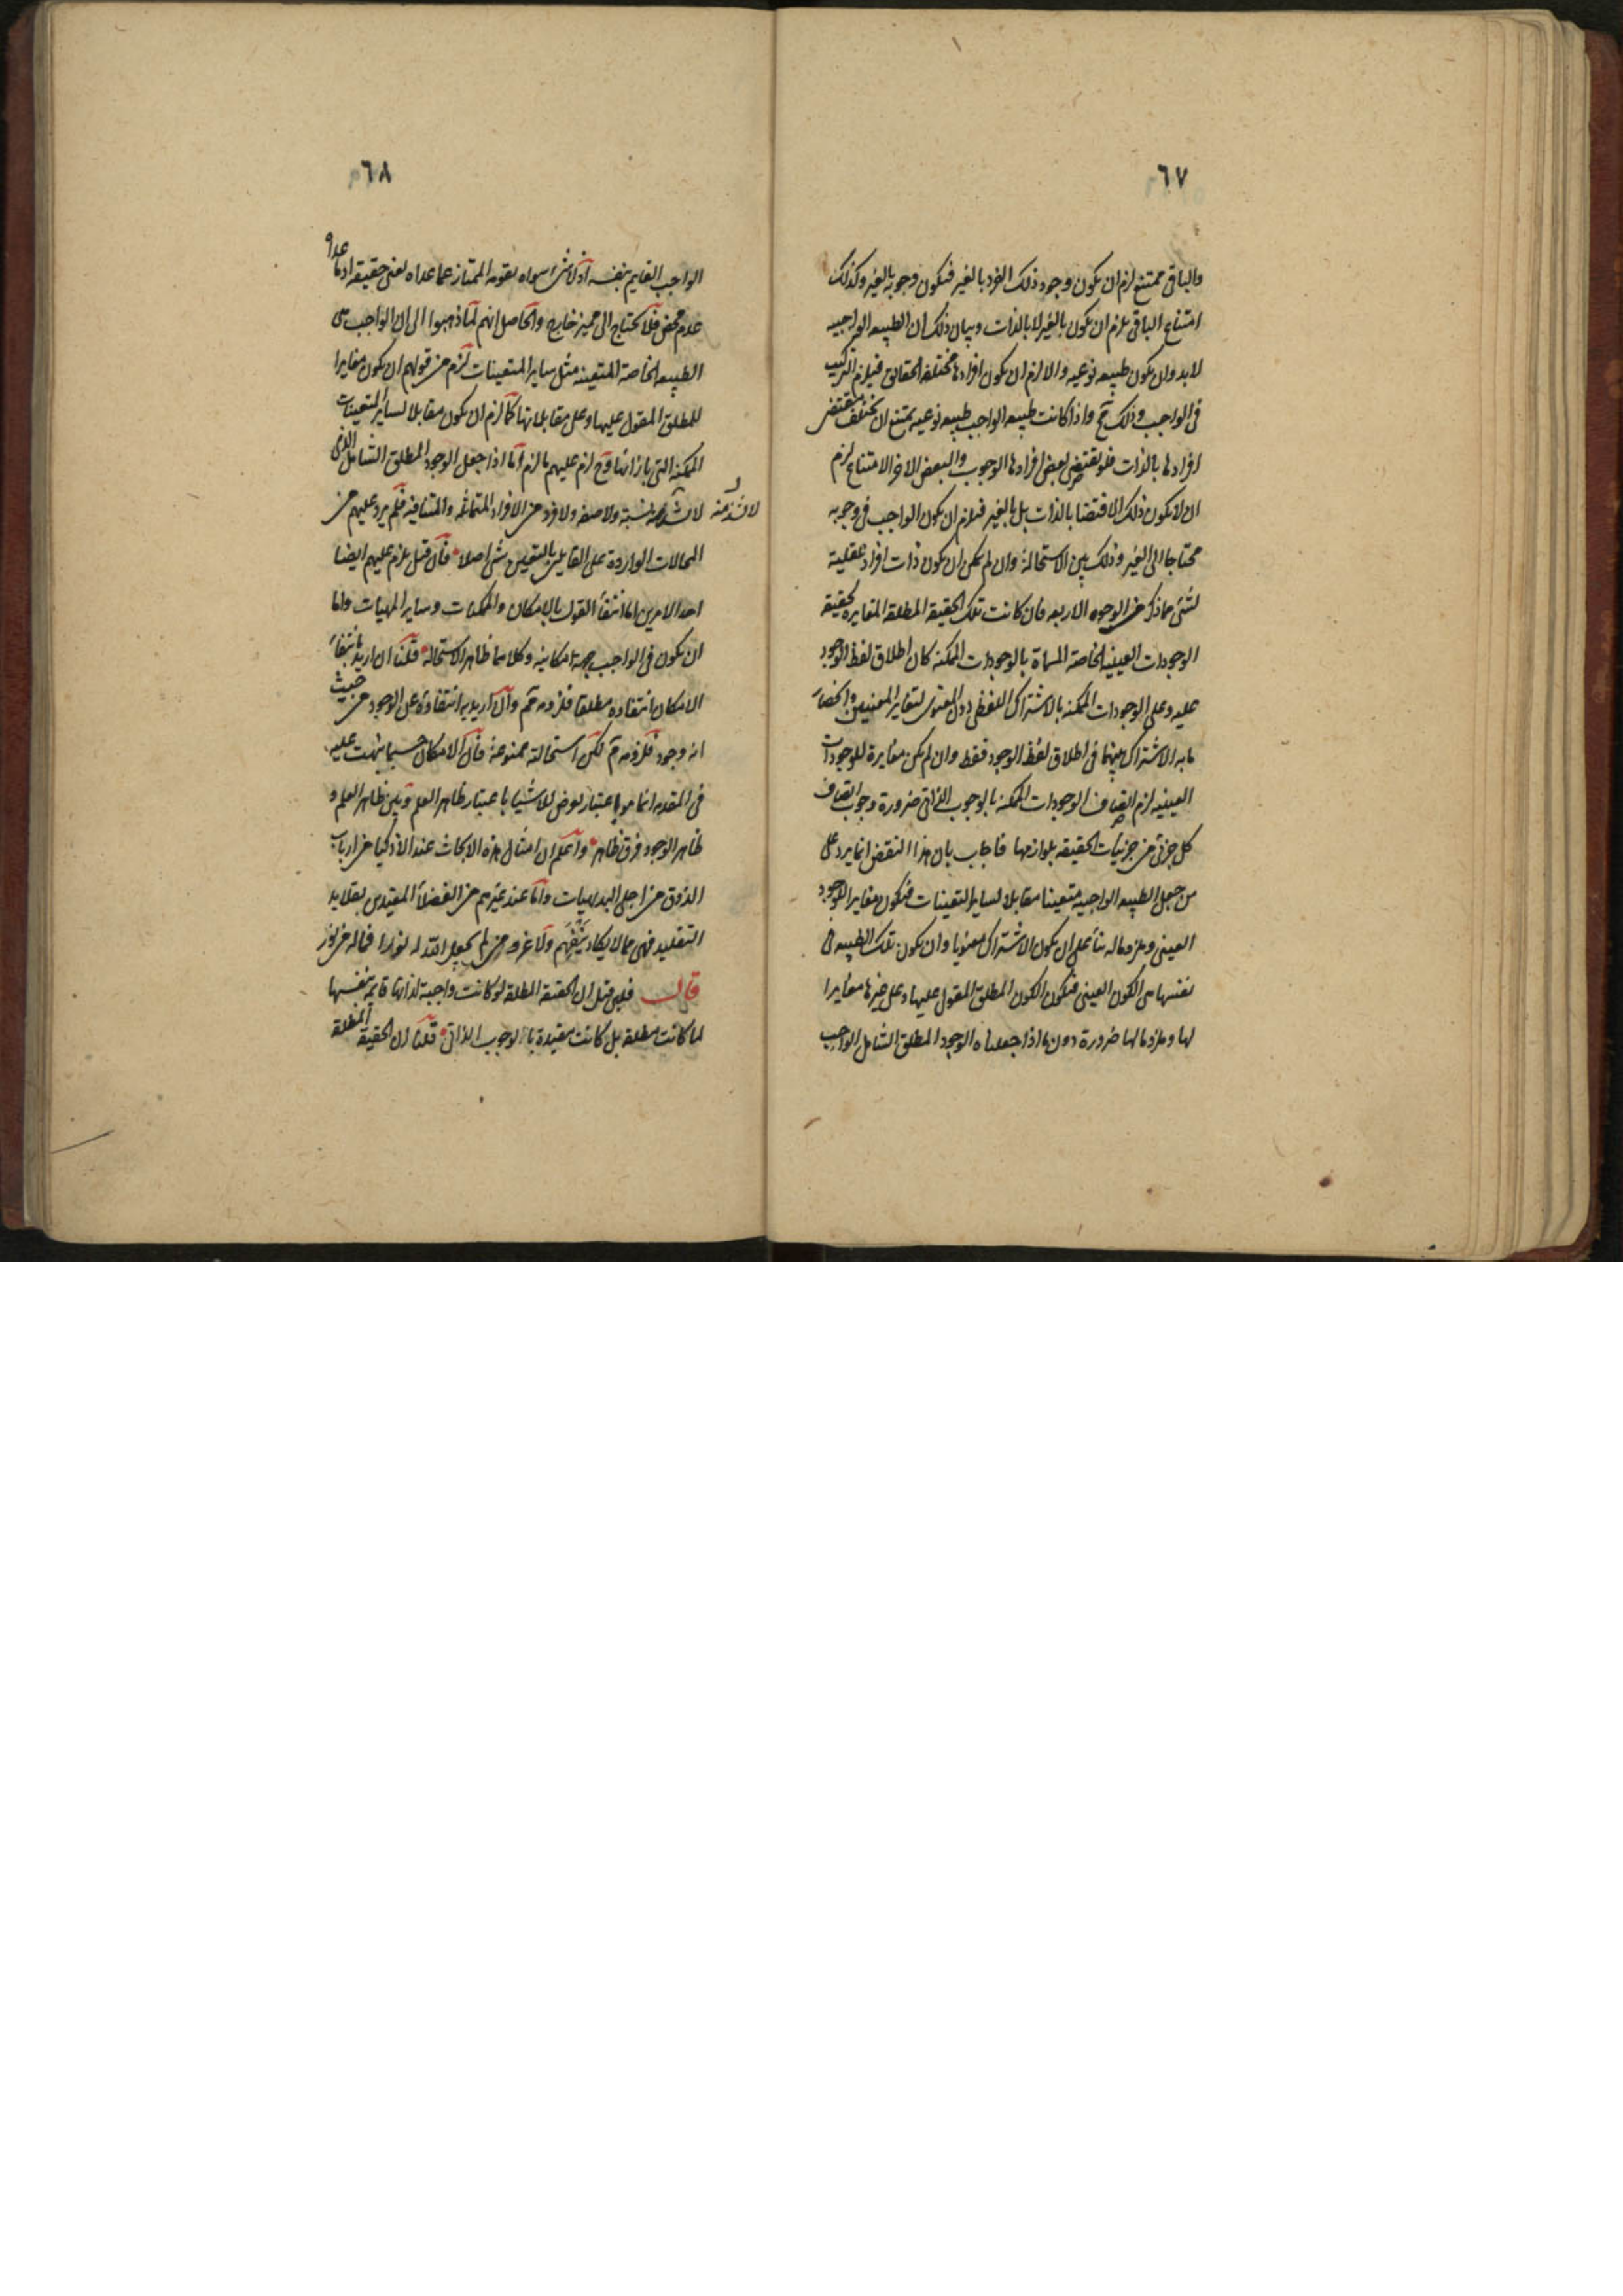 ٦٧
والباقى ممتنع لزم ان يكون وجود ذلك الفرد بالغير فيكون وجوبه بالغير وكذلك
امتناع الباقى يلزم ان يكون بالغير لا بالذات وبيان ذلك ان الطبيعه الواجبيه
لابد وان يكون طبيعه نوعيه والا لزم ان يكون افرادها مختلفه الحقائق فيلزم التركيب
فى الواجب وذلك مح واذا كانت طبيعه الواجب طبيعه نوعيه يمتنع ان يختلف مقتضى
افرادها بالذات فلو يقتضى بعض افرادها الوجوب والبعض الاخر الامتناع لزم
ان لا يكون ذلك الاقتضا بالذات بل بالغير فيلزم ان يكون الواجب فى وجوبه
محتاجا الى الغير وذلك بين الاستحالة وان لم يكن ان يكون ذات افراد عقلية
لشئ مما ذكر من الوجوه الاربعه فان كانت تلك الحقيقه المطلقه المغايره لحقيقة
الوجودات العينيه الخاصة المسماة بالوجودات الممكنه كان اطلاق لفظ الوجود
عليه وعلى الوجودات الممكنه بالاشتراك اللفظى دون المعنوى لتغاير المعنيين وانحصار
ما به الاشتراك بينهما فى اطلاق لفظ الوجود فقط وان لم يكن مغايرة للوجودات
العينيه لزم اتصاف الوجودات الممكنه بالوجوب الذاتى ضرورة وجوب اتصاف
كل جزئى من جزئيات الحقيقه بلوازمها فاجاب بان هذا النقض انما يرد على
من جعل الطبيعه الواجبيه متعينا مقابلا لساير التعينات فيكون مغايرا للوجود
العينى وملزوما له بناء على ان يكون الاشتراك معنويا وان يكون تلك الطبيعه فى
نفسها هى الكون العينى فيكون الكون المطلق المقول عليها وعلى غيرها مغايرا
لها وملزوما لها ضرورة دون ما اذا جعلناه الوجود المطلق الشامل الواجب
٦٨
الواجب القايم بنفسه اذ لا شئ سواه يقومه الممتاز عما عداه لعنى حقيقه اذ ما عداه
عدم محض فلا يحتاج الى مميز خارج والحاصل انهم لما ذهبوا الى ان الواجب هى
الطبيعه الخاصة المتعينه مثل ساير المتعينات لزم من قولهم ان يكون مغايرا
للمطلق المقول عليها وعلى مقابلاتها كما لزم ان يكون مقابلا لساير التعينات
الممكنه التى بازائها وح لزم عليهم ما لزم اما اذا جعل الوجود المطلق الشامل الذى
لا يشذ منه نسبة ولا صنف ولا فرد من الافراد المتماثله والمتنافيه فلم يرد عليهم من
لا يشذ منه
المحالات الوارده على القايلين بالتعين شئ اصلا فان قيل يلزم عليهم ايضا
احد الامرين اما انتفا القول بالامكان والممكنات وساير المهيات واما
ان يكون فى الواجب جهة امكانيه وكلاهما ظاهر الاستحاله قلنا ان اريد بانتفاء
الامكان انتفاءه مطلقا فلزومه مم وان اريد به انتفاؤه عن الوجود من حيث
انه وجود فلزومه مم لكن استحالته ممنوعة فان الامكان حسبما نبهت عليه
فى المقدمه انما هو باعتبار يعرض للاشيا باعتبار ظاهر العلم وبين ظاهر العلم و
ظاهر الوجود فرق ظاهر واعلم ان امثال هذه الابحاث عند الاذكيا من ارباب
الذوق من اجلى البديهيات واما عند غيرهم من الفضلاء المقيدين بقلايد
التقليد فهى مما لا يكاد يتفهم ولا غرو ومن لم يجعل الله له نورا فما له من نور
قال فلئن قيل ان الحقيقه المطلقه لو كانت واجبة لذاتها قايمه بنفسها
لما كانت مطلقه بل كانت مقيدة بالوجوب الذاتى قلنا ان الحقيقه المطلقة